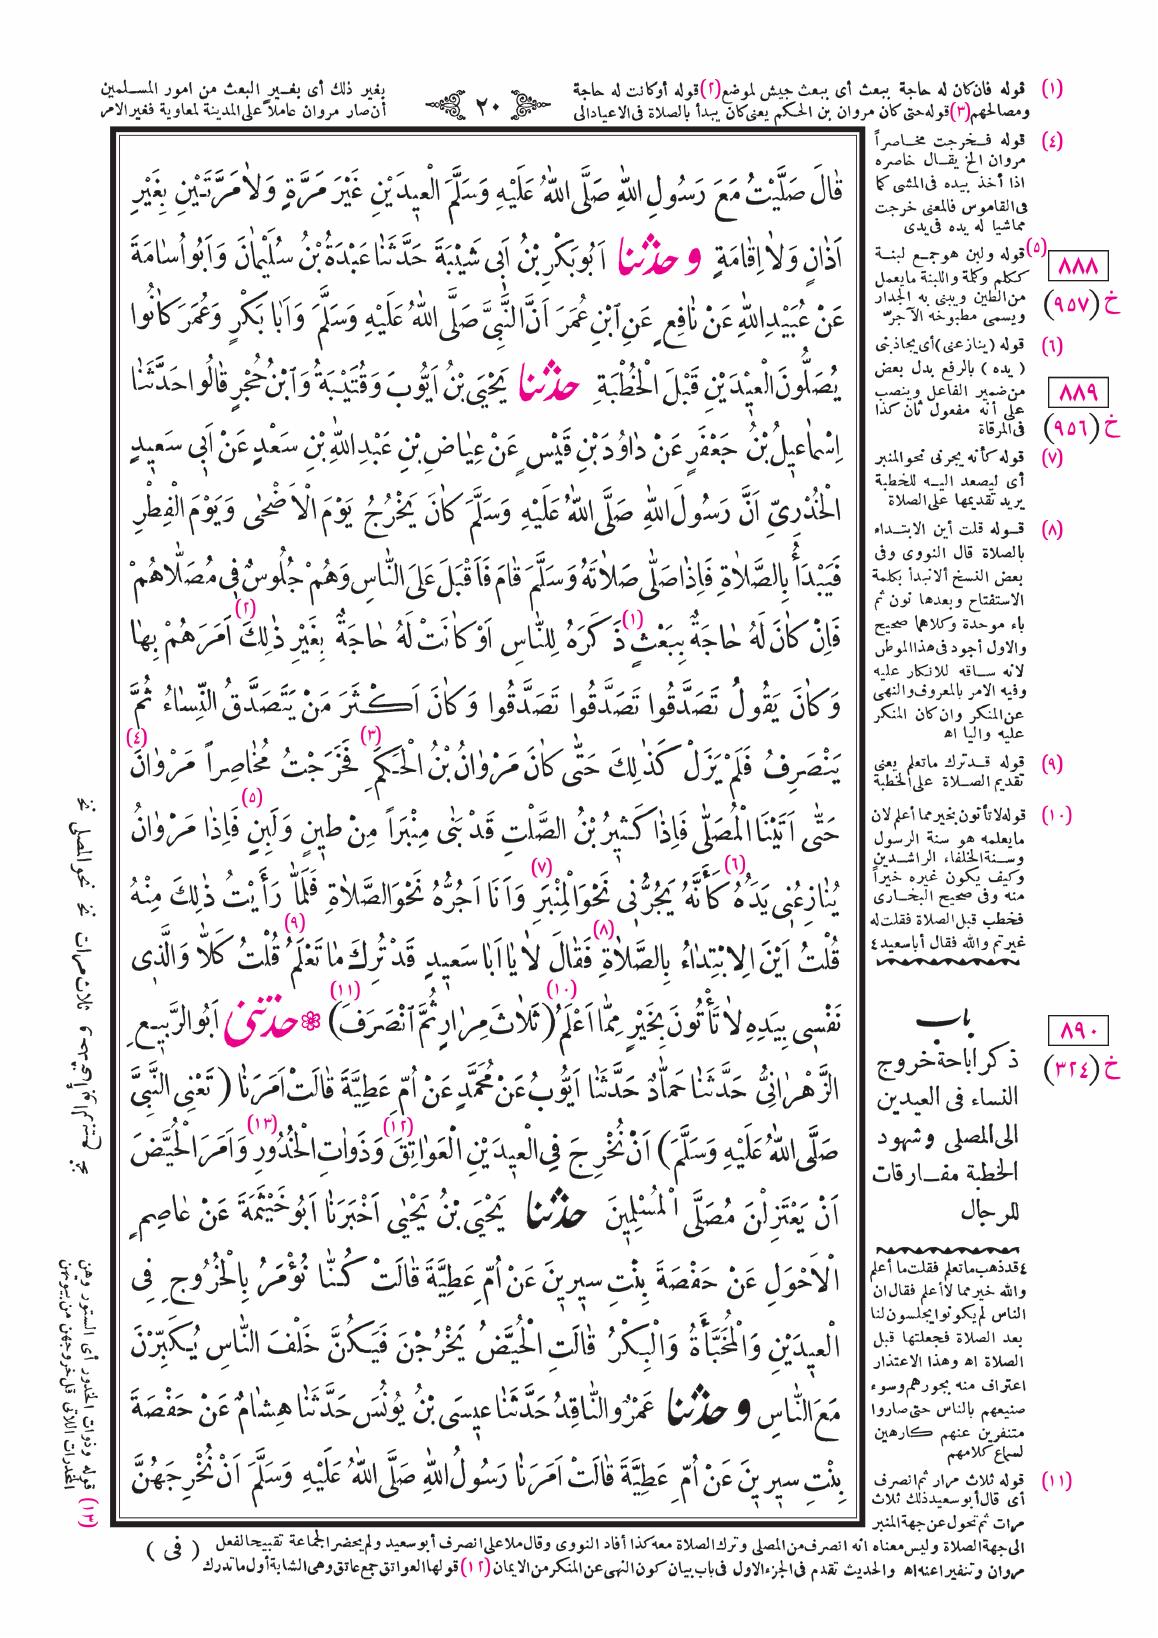 (١) قوله فان كان له حاجة ببعث أى ببعث جيش لموضع (٢) قوله أو كانت له حاجة
ومصالحهم (٣) قوله حتى كان مروان بن الحكم يعنى كان يبدأ بالصلاة فى الاعياد الى
٢٠
بغير ذلك أى بغير البعث من امور المسلمين
أن صار مروان عاملا على المدينة لمعاوية فغير الامر
قَالَ صَلَّيْتُ مَعَ رَسُولِ اللّٰهِ صَلَّى اللّٰهُ عَلَيْهِ وَسَلَّمَ الْعِيدَيْنِ غَيْرَ مَرَّةٍ وَلاَ مَرَّتَيْنِ بِغَيْرِ
اَذَانٍ وَلاَ اِقَامَةٍ وحدثنا اَبُو بَكْرِ بْنُ اَبِى شَيْبَةَ حَدَّثَنَا عَبْدَةُ بْنُ سُلَيْمَانَ وَاَبُو اُسَامَةَ
عَنْ عُبَيْدِ اللّٰهِ عَنْ نَافِعٍ عَنِ ابْنِ عُمَرَ اَنَّ النَّبِىَّ صَلَّى اللّٰهُ عَلَيْهِ وَسَلَّمَ وَاَبَا بَكْرٍ وَعُمَرَ كَانُوا
يُصَلُّونَ الْعِيدَيْنِ قَبْلَ الْخُطْبَةِ حدثنا يَحْيَى بْنُ اَيُّوبَ وَقُتَيْبَةُ وَابْنُ حُجْرٍ قَالُوا حَدَّثَنَا
اِسْمَاعِيلُ بْنُ جَعْفَرٍ عَنْ دَاوُدَ بْنِ قَيْسٍ عَنْ عِيَاضِ بْنِ عَبْدِ اللّٰهِ بْنِ سَعْدٍ عَنْ اَبِى سَعِيدٍ
الْخُدْرِىِّ اَنَّ رَسُولَ اللّٰهِ صَلَّى اللّٰهُ عَلَيْهِ وَسَلَّمَ كَانَ يَخْرُجُ يَوْمَ الْاَضْحٰى وَيَوْمَ الْفِطْرِ
فَيَبْدَأُ بِالصَّلاَةِ فَاِذَا صَلَّى صَلاَتَهُ وَسَلَّمَ قَامَ فَاَقْبَلَ عَلَى النَّاسِ وَهُمْ جُلُوسٌ فِى مُصَلاَّهُمْ
فَاِنْ كَانَ لَهُ حَاجَةٌ بِبَعْثٍ (١) ذَكَرَهُ لِلنَّاسِ اَوْ كَانَتْ لَهُ حَاجَةٌ بِغَيْرِ ذٰلِكَ (٢) اَمَرَهُمْ بِهَا
وَكَانَ يَقُولُ تَصَدَّقُوا تَصَدَّقُوا تَصَدَّقُوا وَكَانَ اَكْثَرَ مَنْ يَتَصَدَّقُ النِّسَاءُ ثُمَّ
يَنْصَرِفُ فَلَمْ يَزَلْ كَذٰلِكَ حَتّٰى كَانَ مَرْوَانُ بْنُ الْحَكَمِ (٣) فَخَرَجْتُ مُخَاصِراً مَرْوَانَ (٤)
حَتّٰى اَتَيْنَا الْمُصَلَّى فَاِذَا كَثِيرُ بْنُ الصَّلْتِ قَدْ بَنٰى مِنْبَراً مِنْ طِينٍ وَلَبِنٍ (٥) فَاِذَا مَرْوَانُ
يُنَازِعُنِى يَدَهُ (٦) كَاَنَّهُ يَجُرُّنِى نَحْوَ الْمِنْبَرِ (٧) وَاَنَا اَجُرُّهُ نَحْوَ الصَّلاَةِ فَلَمَّا رَاَيْتُ ذٰلِكَ مِنْهُ
قُلْتُ اَيْنَ الاِبْتِدَاءُ بِالصَّلاَةِ (٨) فَقَالَ لاَ يَا اَبَا سَعِيدٍ قَدْ تُرِكَ مَا تَعْلَمُ (٩) قُلْتُ كَلاَّ وَالَّذِى
نَفْسِى بِيَدِهِ لاَ تَأْتُونَ بِخَيْرٍ مِمَّا اَعْلَمُ (١٠) (ثَلاَثَ مِرَارٍ ثُمَّ انْصَرَفَ) (١١) حدثنى اَبُو الرَّبِيعِ
الزَّهْرَانِىُّ حَدَّثَنَا حَمَّادٌ حَدَّثَنَا اَيُّوبُ عَنْ مُحَمَّدٍ عَنْ اُمِّ عَطِيَّةَ قَالَتْ اَمَرَنَا (تَعْنِى النَّبِىَّ
صَلَّى اللّٰهُ عَلَيْهِ وَسَلَّمَ) اَنْ نُخْرِجَ فِى الْعِيدَيْنِ الْعَوَاتِقَ (١٢) وَذَوَاتِ الْخُدُورِ (١٣) وَاَمَرَ الْحُيَّضَ
اَنْ يَعْتَزِلْنَ مُصَلَّى الْمُسْلِمِينَ حدثنا يَحْيَى بْنُ يَحْيٰى اَخْبَرَنَا اَبُو خَيْثَمَةَ عَنْ عَاصِمٍ
الْاَحْوَلِ عَنْ حَفْصَةَ بِنْتِ سِيرِينَ عَنْ اُمِّ عَطِيَّةَ قَالَتْ كُنَّا نُؤْمَرُ بِالْخُرُوجِ فِى
الْعِيدَيْنِ وَالْمُخَبَّأَةُ وَالْبِكْرُ قَالَتِ الْحُيَّضُ يَخْرُجْنَ فَيَكُنَّ خَلْفَ النَّاسِ يُكَبِّرْنَ
مَعَ النَّاسِ وحدثنا عَمْرٌو النَّاقِدُ حَدَّثَنَا عِيسَى بْنُ يُونُسَ حَدَّثَنَا هِشَامٌ عَنْ حَفْصَةَ
بِنْتِ سِيرِينَ عَنْ اُمِّ عَطِيَّةَ قَالَتْ اَمَرَنَا رَسُولُ اللّٰهِ صَلَّى اللّٰهُ عَلَيْهِ وَسَلَّمَ اَنْ نُخْرِجَهُنَّ
(٤) قوله فخرجت مخاصراً
مروان الخ يقال خاصره
اذا أخذ بيده فى المشى كما
فى القاموس فالمعنى خرجت
مماشيا له يده فى يدى
(٥) قوله ولبن هو جمع لبنة
ككلم وكلمة واللبنة ما يعمل
من الطين ويبنى به الجدار
ويسمى مطبوخه الآجرّ
(٦) قوله (ينازعنى) أى يجاذبنى
(يده) بالرفع بدل بعض
من ضمير الفاعل وينصب
على أنه مفعول ثان كذا
فى المرقاة
(٧) قوله كأنه يجرنى نحو المنبر
أى ليصعد اليه للخطبة
يريد تقديمها على الصلاة
(٨) قوله قلت أين الابتداء
بالصلاة قال النووى وفى
بعض النسخ ألا نبدأ بكلمة
الاستفتاح وبعدها نون ثم
باء موحدة وكلاهما صحيح
والاول أجود فى هذا الموطن
لانه ساقه للانكار عليه
وفيه الامر بالمعروف والنهى
عن المنكر وان كان المنكر
عليه واليا اه
(٩) قوله قد ترك ما تعلم يعنى
تقديم الصلاة على الخطبة
(١٠) قوله لا تأتون بخير مما أعلم لان
ما يعلمه هو سنة الرسول
وسنة الخلفاء الراشدين
وكيف يكون غيره خيراً
منه وفى صحيح البخارى
فخطب قبل الصلاة فقلت له
غيرتم والله فقال أبا سعيد ٤
باب
ذكر اباحة خروج
النساء فى العيدين
الى المصلى وشهود
الخطبة مفارقات
للرجال
٤ قد ذهب ما تعلم فقلت ما أعلم
والله خير مما لا أعلم فقال ان
الناس لم يكونوا يجلسون لنا
بعد الصلاة فجعلتها قبل
الصلاة اه وهذا الاعتذار
اعتراف منه بجورهم وسوء
صنيعهم بالناس حتى صاروا
متنفرين عنهم كارهين
لسماع كلامهم
(١١) قوله ثلاث مرار ثم انصرف
أى قال أبو سعيد ذلك ثلاث
مرات ثم تحول عن جهة المنبر
٨٨٨
خ (٩٥٧)
٨٨٩
خ (٩٥٦)
٨٩٠
خ (٣٢٤)
نحو المصلى نخ
ثلاث مرات نخ
(١٣) قوله وذوات الخدور أى الستور وهن
المخدرات اللاتى قل خروجهن من بيوتهن
الى جهة الصلاة وليس معناه انه انصرف من المصلى وترك الصلاة معه كذا أفاد النووى وقال ملا على انصرف أبو سعيد ولم يحضر الجماعة تقبيحا لفعل
مروان وتنفيرا عنه اه والحديث تقدم فى الجزء الاول فى باب بيان كون النهى عن المنكر من الايمان (١٢) قولها العواتق جمع عاتق وهى الشابة أول ما تدرك
(فى)